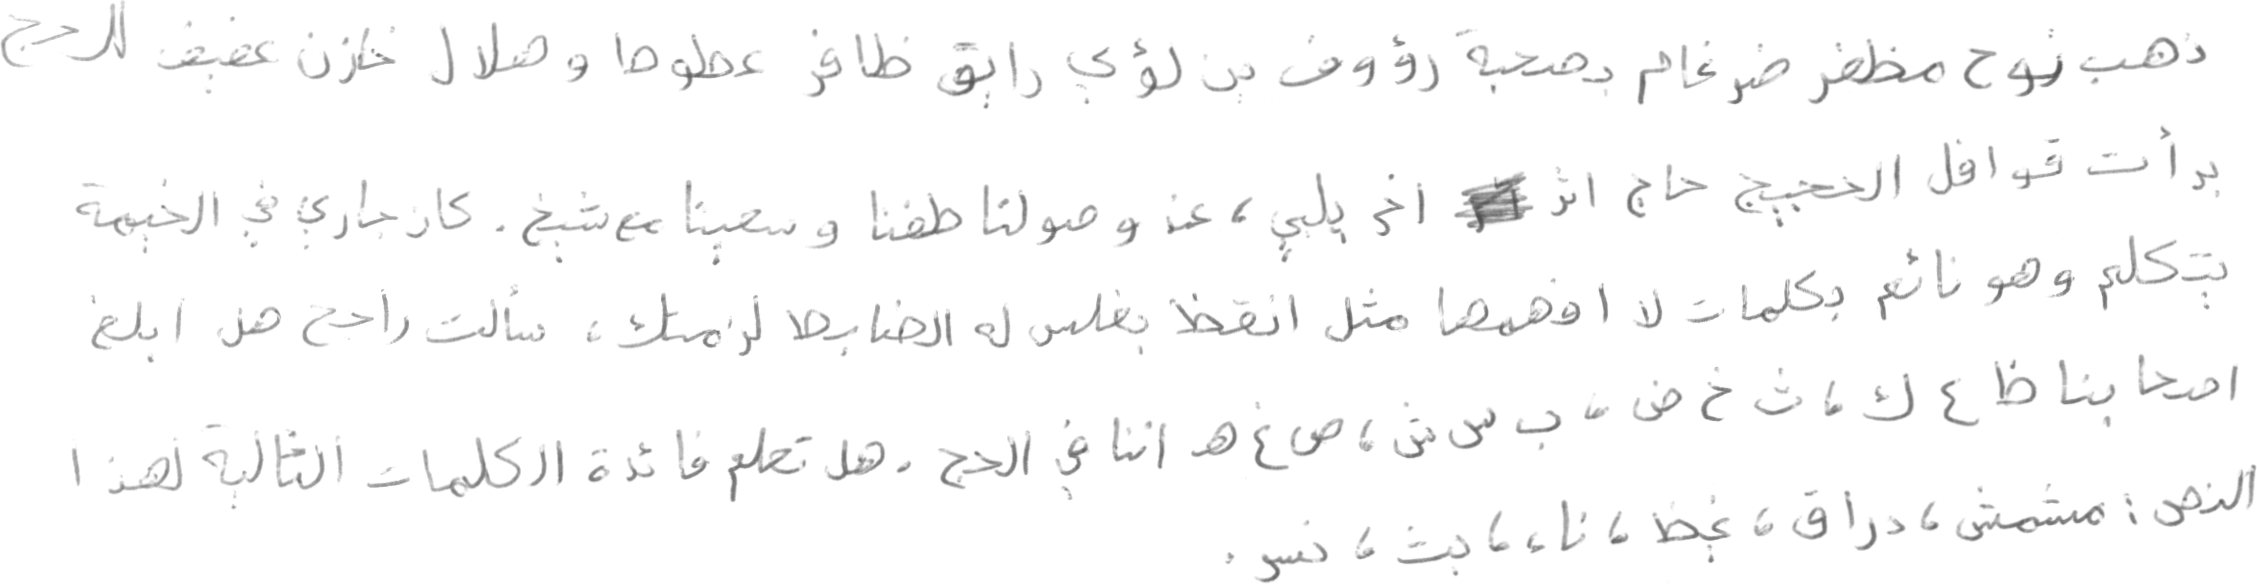 ذهب نوح مظفر ضرغام بصحبة رؤوف بن لؤي رايق ظافر عطوط و هلال خازن عفيف للحج
بدأت قوافل الحجيج حاج اثر اخر يلبي، عند وصولنا طفنا وسعينا مع شيخ. كان جاري في الخيمة
يتكلم وهو نائم بكلمات لا افهمها مثل انقظ بغلس له الضابط لزمتك، سألت راجح هل ابلغ
اصحابنا ظ ع ك، ث خ ض، ب س ش، ص غ هـ اننا في الحج. هل تعلم فائدة الكلمات التالية لهذا
النص: مشمش، دراق، غظ، ناء، بث، نسر.